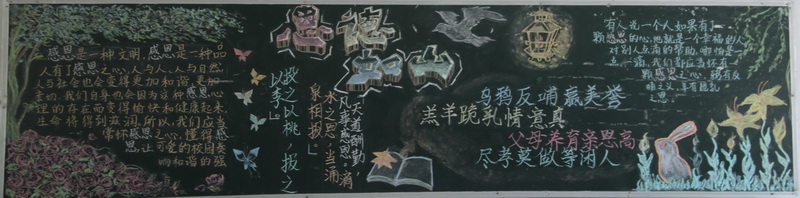 感恩是一种文明,感恩是一种品
人有了感恩之心,人与人,人与自然
人与社会也会变得更加和谐,更加
亲切。我们自身也会因为这种感恩心
理的存在而变得愉快和健康起来,
生命将得到滋润,所以,我们应当
常怀感恩之心,懂得感
恩,让可爱的校园奏
响和谐的强
投之以桃,报之
以李。
感恩
如山
“天道酬勤,
凡来感恩。”滴
水之恩,当涌
泉相报。”
乌鸦反哺赢美誉
羔羊跪乳情意真
父母养育亲恩高
尽孝莫做等闲人
有人说一个人如果有了
颗感恩的心,他就是一个幸福的人
对别人点滴的帮助,哪怕是一
点一滴,我们都应当怀有
颗感恩之心,
之恩。